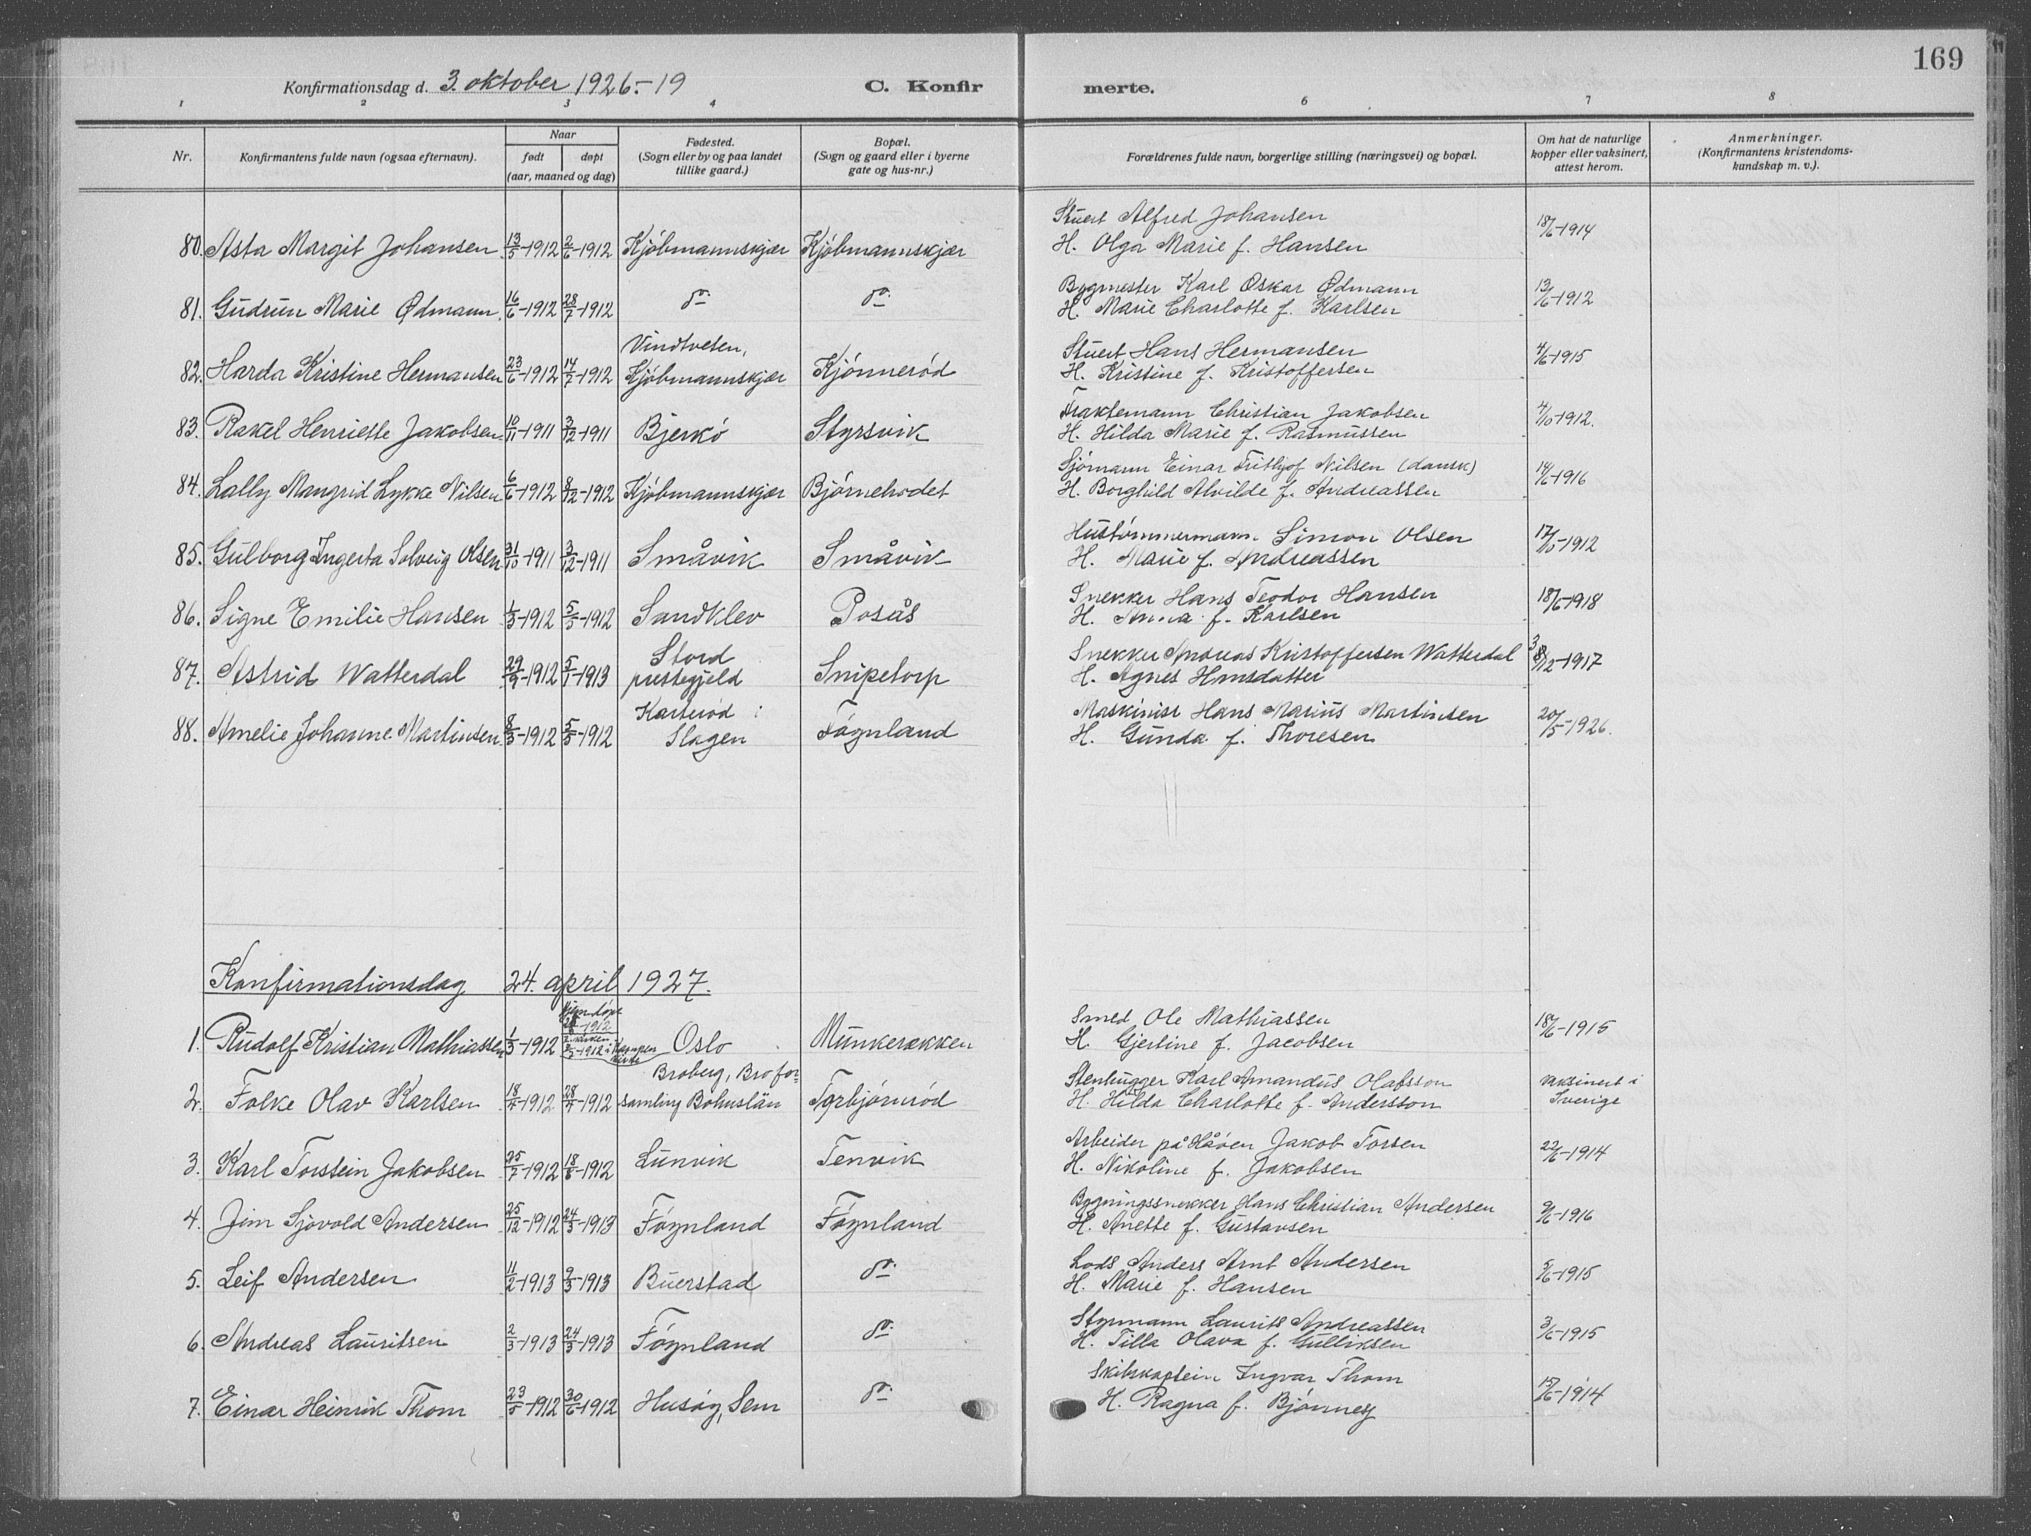 169
Konfirmationsdag d. 3. oktober 1926.-19
C. Konfirmerte.
1 2 3 4 6 7 8
Nr.
Konfirmantens fulde navn (ogsaa efternavn).
Naar
født døpt
(aar, maaned og dag)
Fødested.
(Sogn eller by og paa landet
tillike gaard.)
Bopæl.
(Sogn og gaard eller i byerne
gate og hus-nr.)
Forældrenes fulde navn, borgerlige stilling (næringsvei) og bopæl.
Om hat de naturlige
kopper eller vaksinert,
attest herom.
Anmerkninger.
(Konfirmantens kristendoms-
kundskap m. v.).
Stuert Alfred Johansen 18/6-1914
80. Asta Margit Johansen 13/5-1912 2/6-1912 Kjöbmannskjær Kjöbmannskjær H. Olga Marie f. Hansen
Bygmester Karl Oskar Ødmann 13/6-1912
81. Gudrun Marie Ødmann 16/6-1912 28/7-1912 do do H. Marie Charlotte f. Karlsen
Vindtveten, Stuert Hans Hermansen 4/6-1915
82. Harda Kristine Hermansen 23/6-1912 14/7-1912 Kjöbmannskjær Kjönnerød H. Kristine f. Kristoffersen
Fraktemann Christian Jakobsen 4/10-1912.
83. Rakel Henriette Jakobsen 10/11-1911 3/12-1911 Bjerkö Styrsvik H. Hilda Marie f. Rasmussen
Sjömann Einar Frithjof Nilsen (dansk) 14/6-1916
84. Lally Mangrid Lykke Nilsen 6/6-1912 8/12-1912 Kjöbmannskjær Bjørnehodet H. Borghild Alvilde f. Andreassen
Hustömmermann Simon Olsen 17/10-1912
85. Gulborg Ingerta Solveig Olsen 31/10-1911 3/12-1911 Småvik Småvik H. Marie f. Andreassen
Snekker Hans Teodor Hansen 18/6-1918
86. Signe Emilie Hansen 1/3-1912 5/5-1912 Sandklev Posås H. Anna f. Karlsen
Stord Snekker Andreas Kristoffersen Watterdal 12-1917
87. Astrid Watterdal 29/9-1912 5/1-1913 prestegjeld Snipetorp H. Agnes Hansdatter
Karterød i Maskinist Hans Marius Martinsen 20/5-1926.
88. Amelie Johanne Martinsen 8/3-1912 5/5-1912 Slagen Föynland H. Gunda f. Thoresen
Konfirmationsdag 24. april 1927.
hjemdöpt Smed Ole Mathiassen 18/6-1915
1. Rudolf Kristian Mathiassen 1/3-1912 Oslo Munkerækken H. Gjertine f. Jacobsen
Broberg, Brofor= Stenhugger Karl Amandus Olafsson vaksinert i
2. Folke Olav Karlsen 18/4-1912 28/4-1912 samling Bohuslän Torbjørnrød H. Hilda Charlotte f. Andersson Sverige
Arbeider på Håöen Jakob Torsen 22/6-1914
3. Karl Torstein Jakobsen 25/7-1912 18/8-1912 Lunvik Tenvik H. Nikoline f. Jakobsen
Bygningssnekker Hans Christian Andersen 9/6-1916
4. Jim Sjövold Andersen 25/12-1912 24/3-1913 Föynland Föynland H. Anette f. Gustavsen
Lods Anders Arnt Andersen 5/6-1915
5. Leif Andersen 11/2-1913 9/3-1913 Buerstad do H. Marie f. Hansen
Styrmann Laurits Andreassen 3/6-1915
6. Andreas Lauritsen 2/3-1913 24/3-1913 Föynland do H. Tilla Olava f. Gulliksen
Skibskaptein Ingvar Thom 15/6-1914
7. Einar Heinrik Thom 23/5-1912 30/6-1912 Husöy, Sem do H. Ragna f. Bjønnes